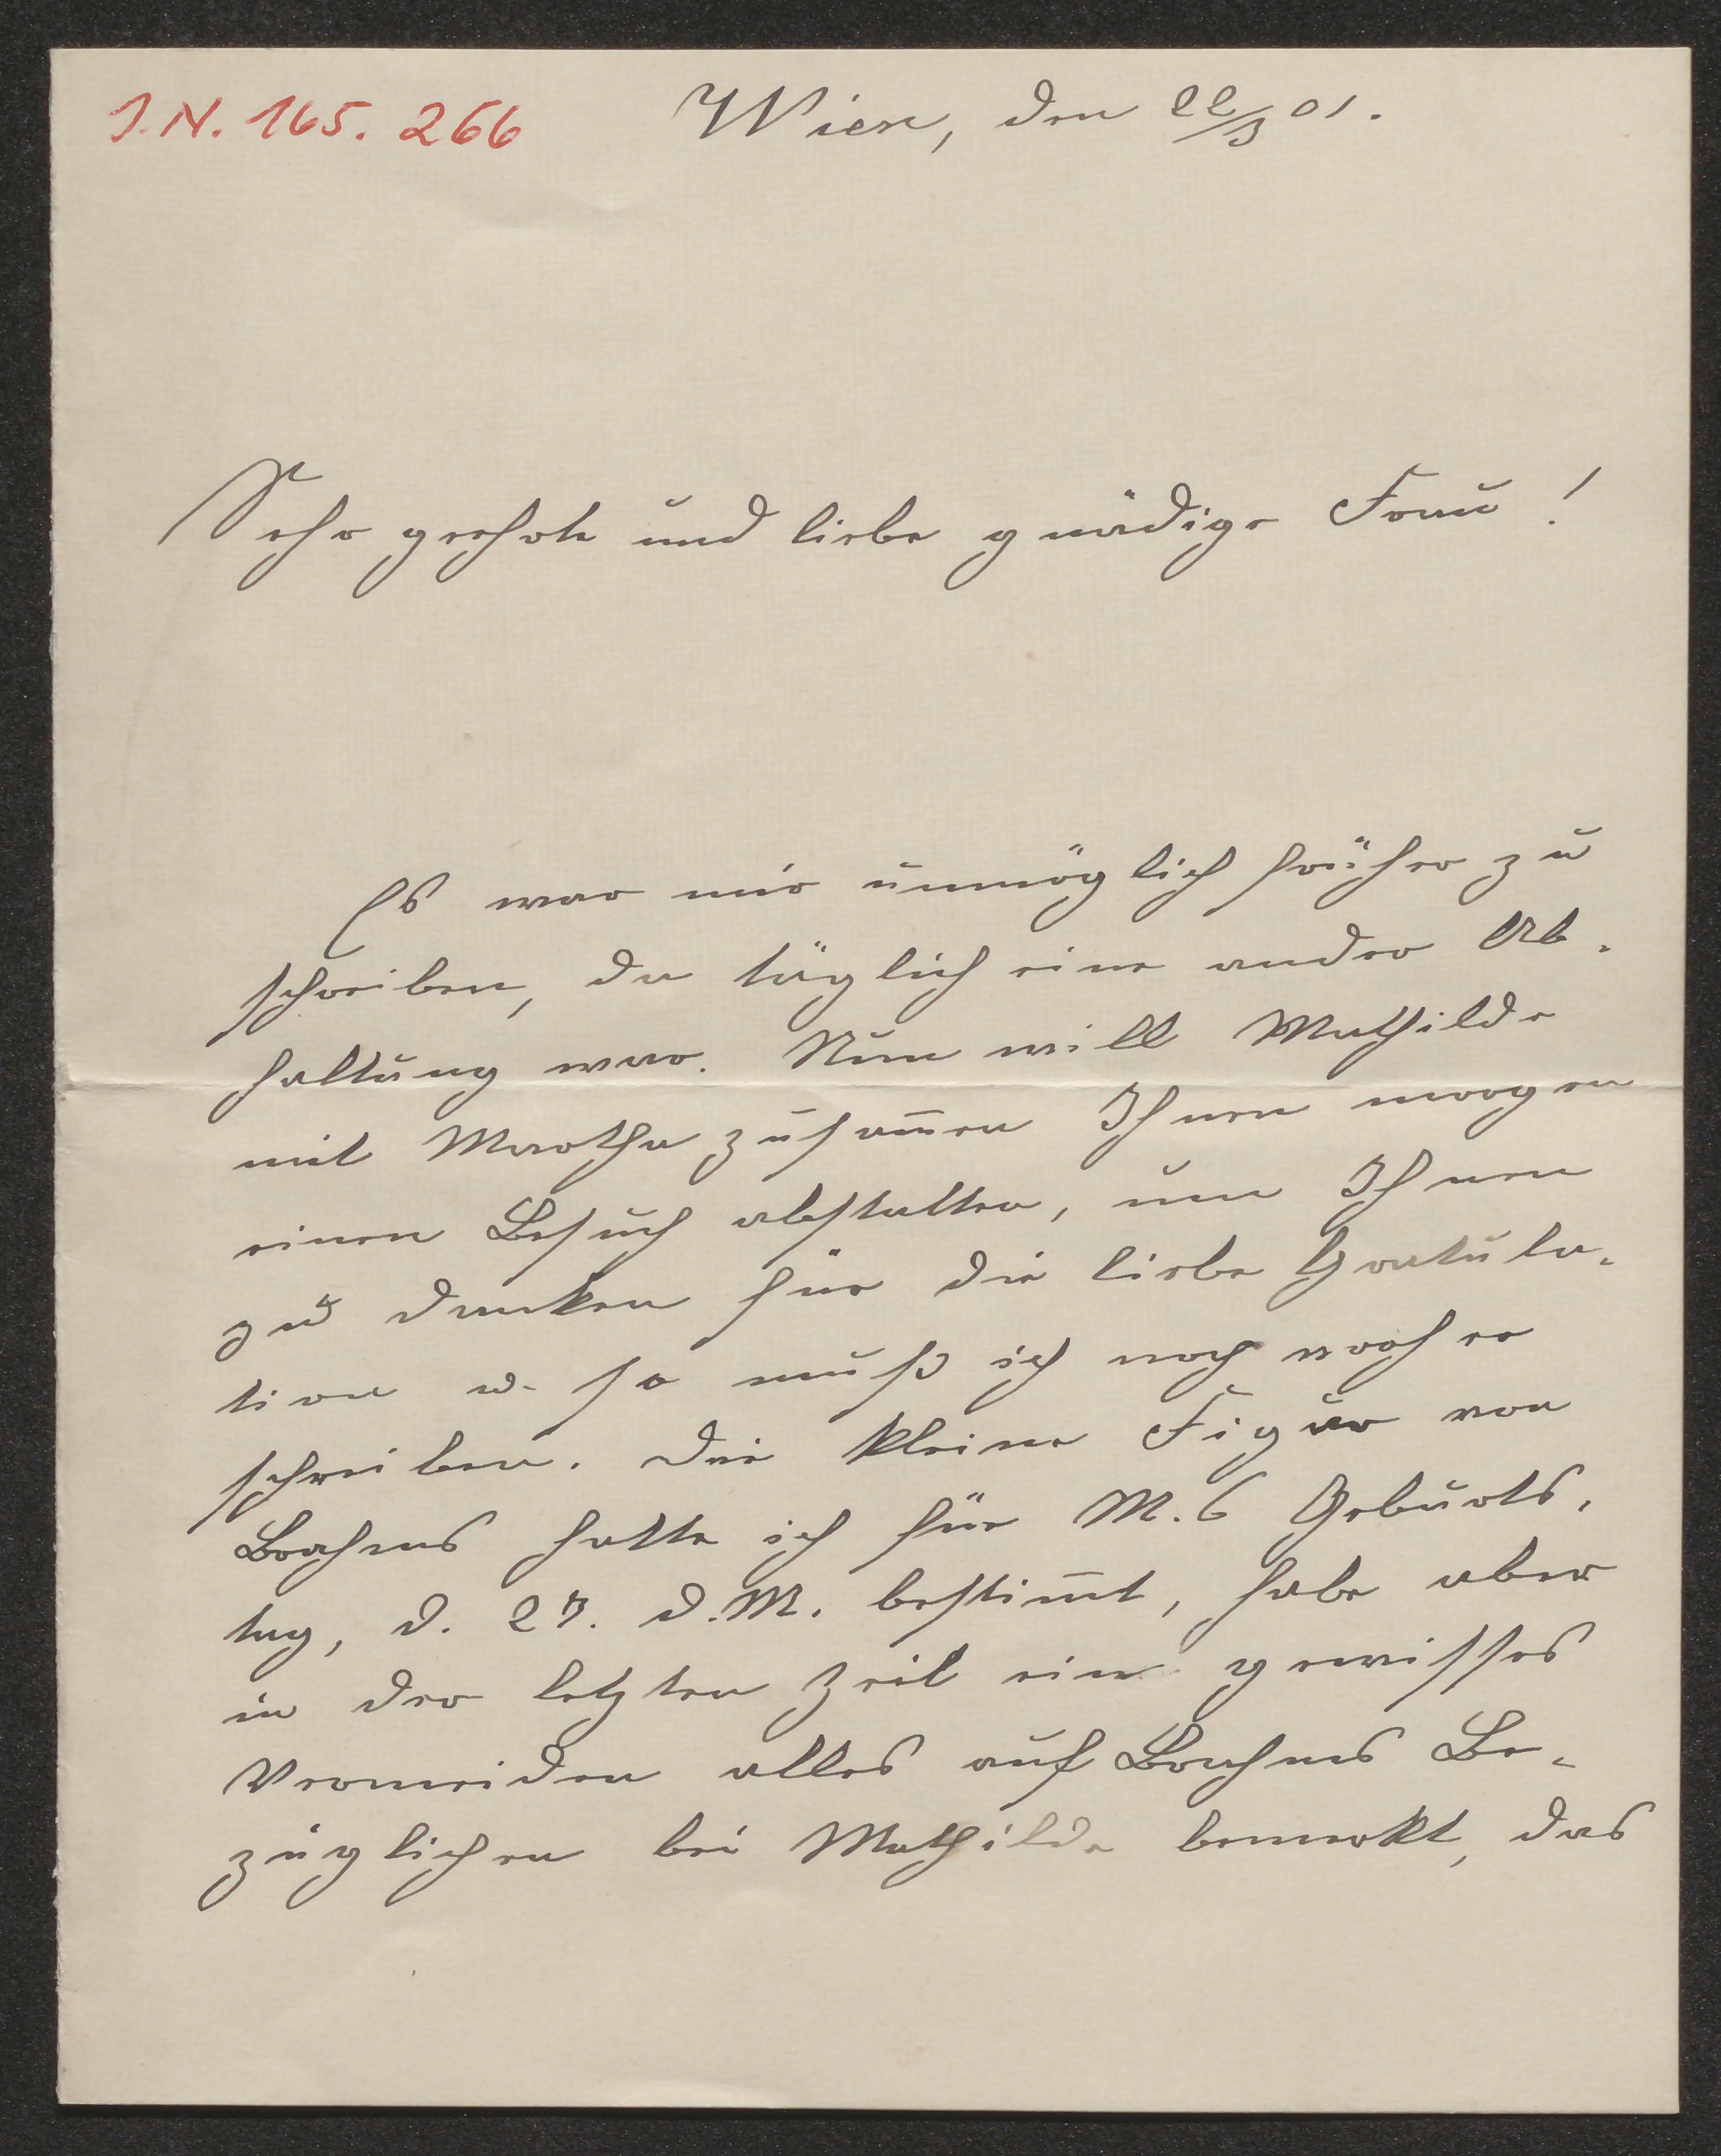 J.N. 165.266
Wien, den 22/3 01.
Sehr geehrte und liebe gnädige Frau!
Es war mir unmöglich früher zu
schreiben, da täglich eine andre Ab-
haltung war. Nun will Mathilde
mit Martha zusam̅en Ihnen morgen
einen Besuch abstatten, um Ihnen
zu danken für die liebe Gratula-
tion u. so muß ich noch vorher
schreiben. Die kleine Figur von
Brahms hatte ich für M.s Geburts-
tag, d. 27. d.M. bestim̅t, habe aber
in der letzten Zeit ein gewisses
Vermeiden alles auf Brahms Be-
züglichen bei Mathilde bemerkt, das